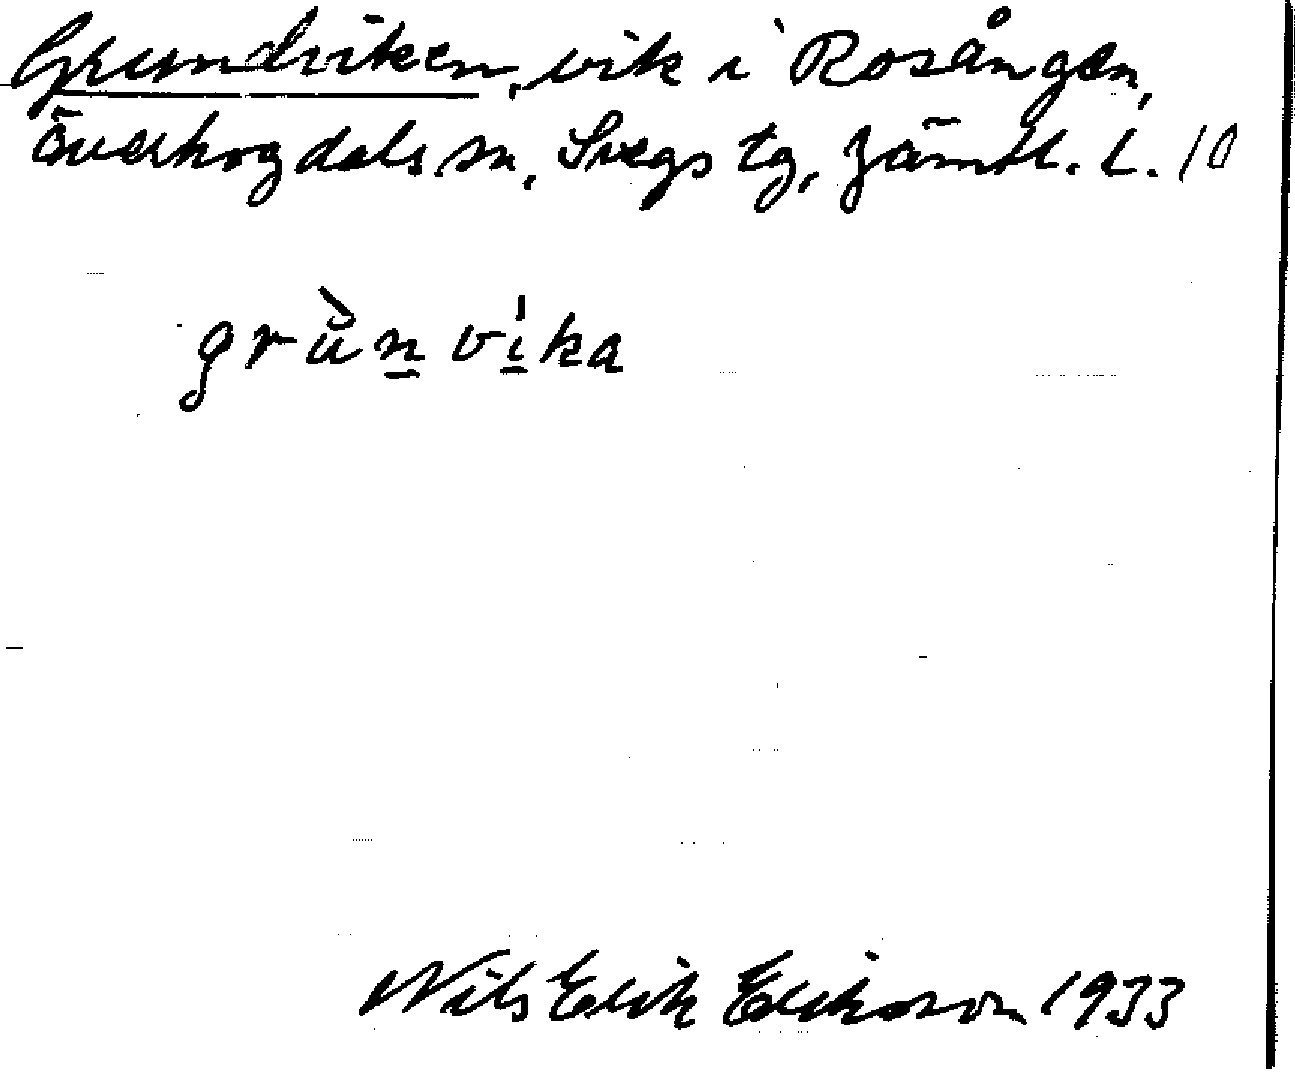 Grundviken, vik i Rosången,
Överhogdals sn, Svegs tg, Jämtl. l. 10
grùn̲ vi̲ka
Nils Erik Erikson 1933